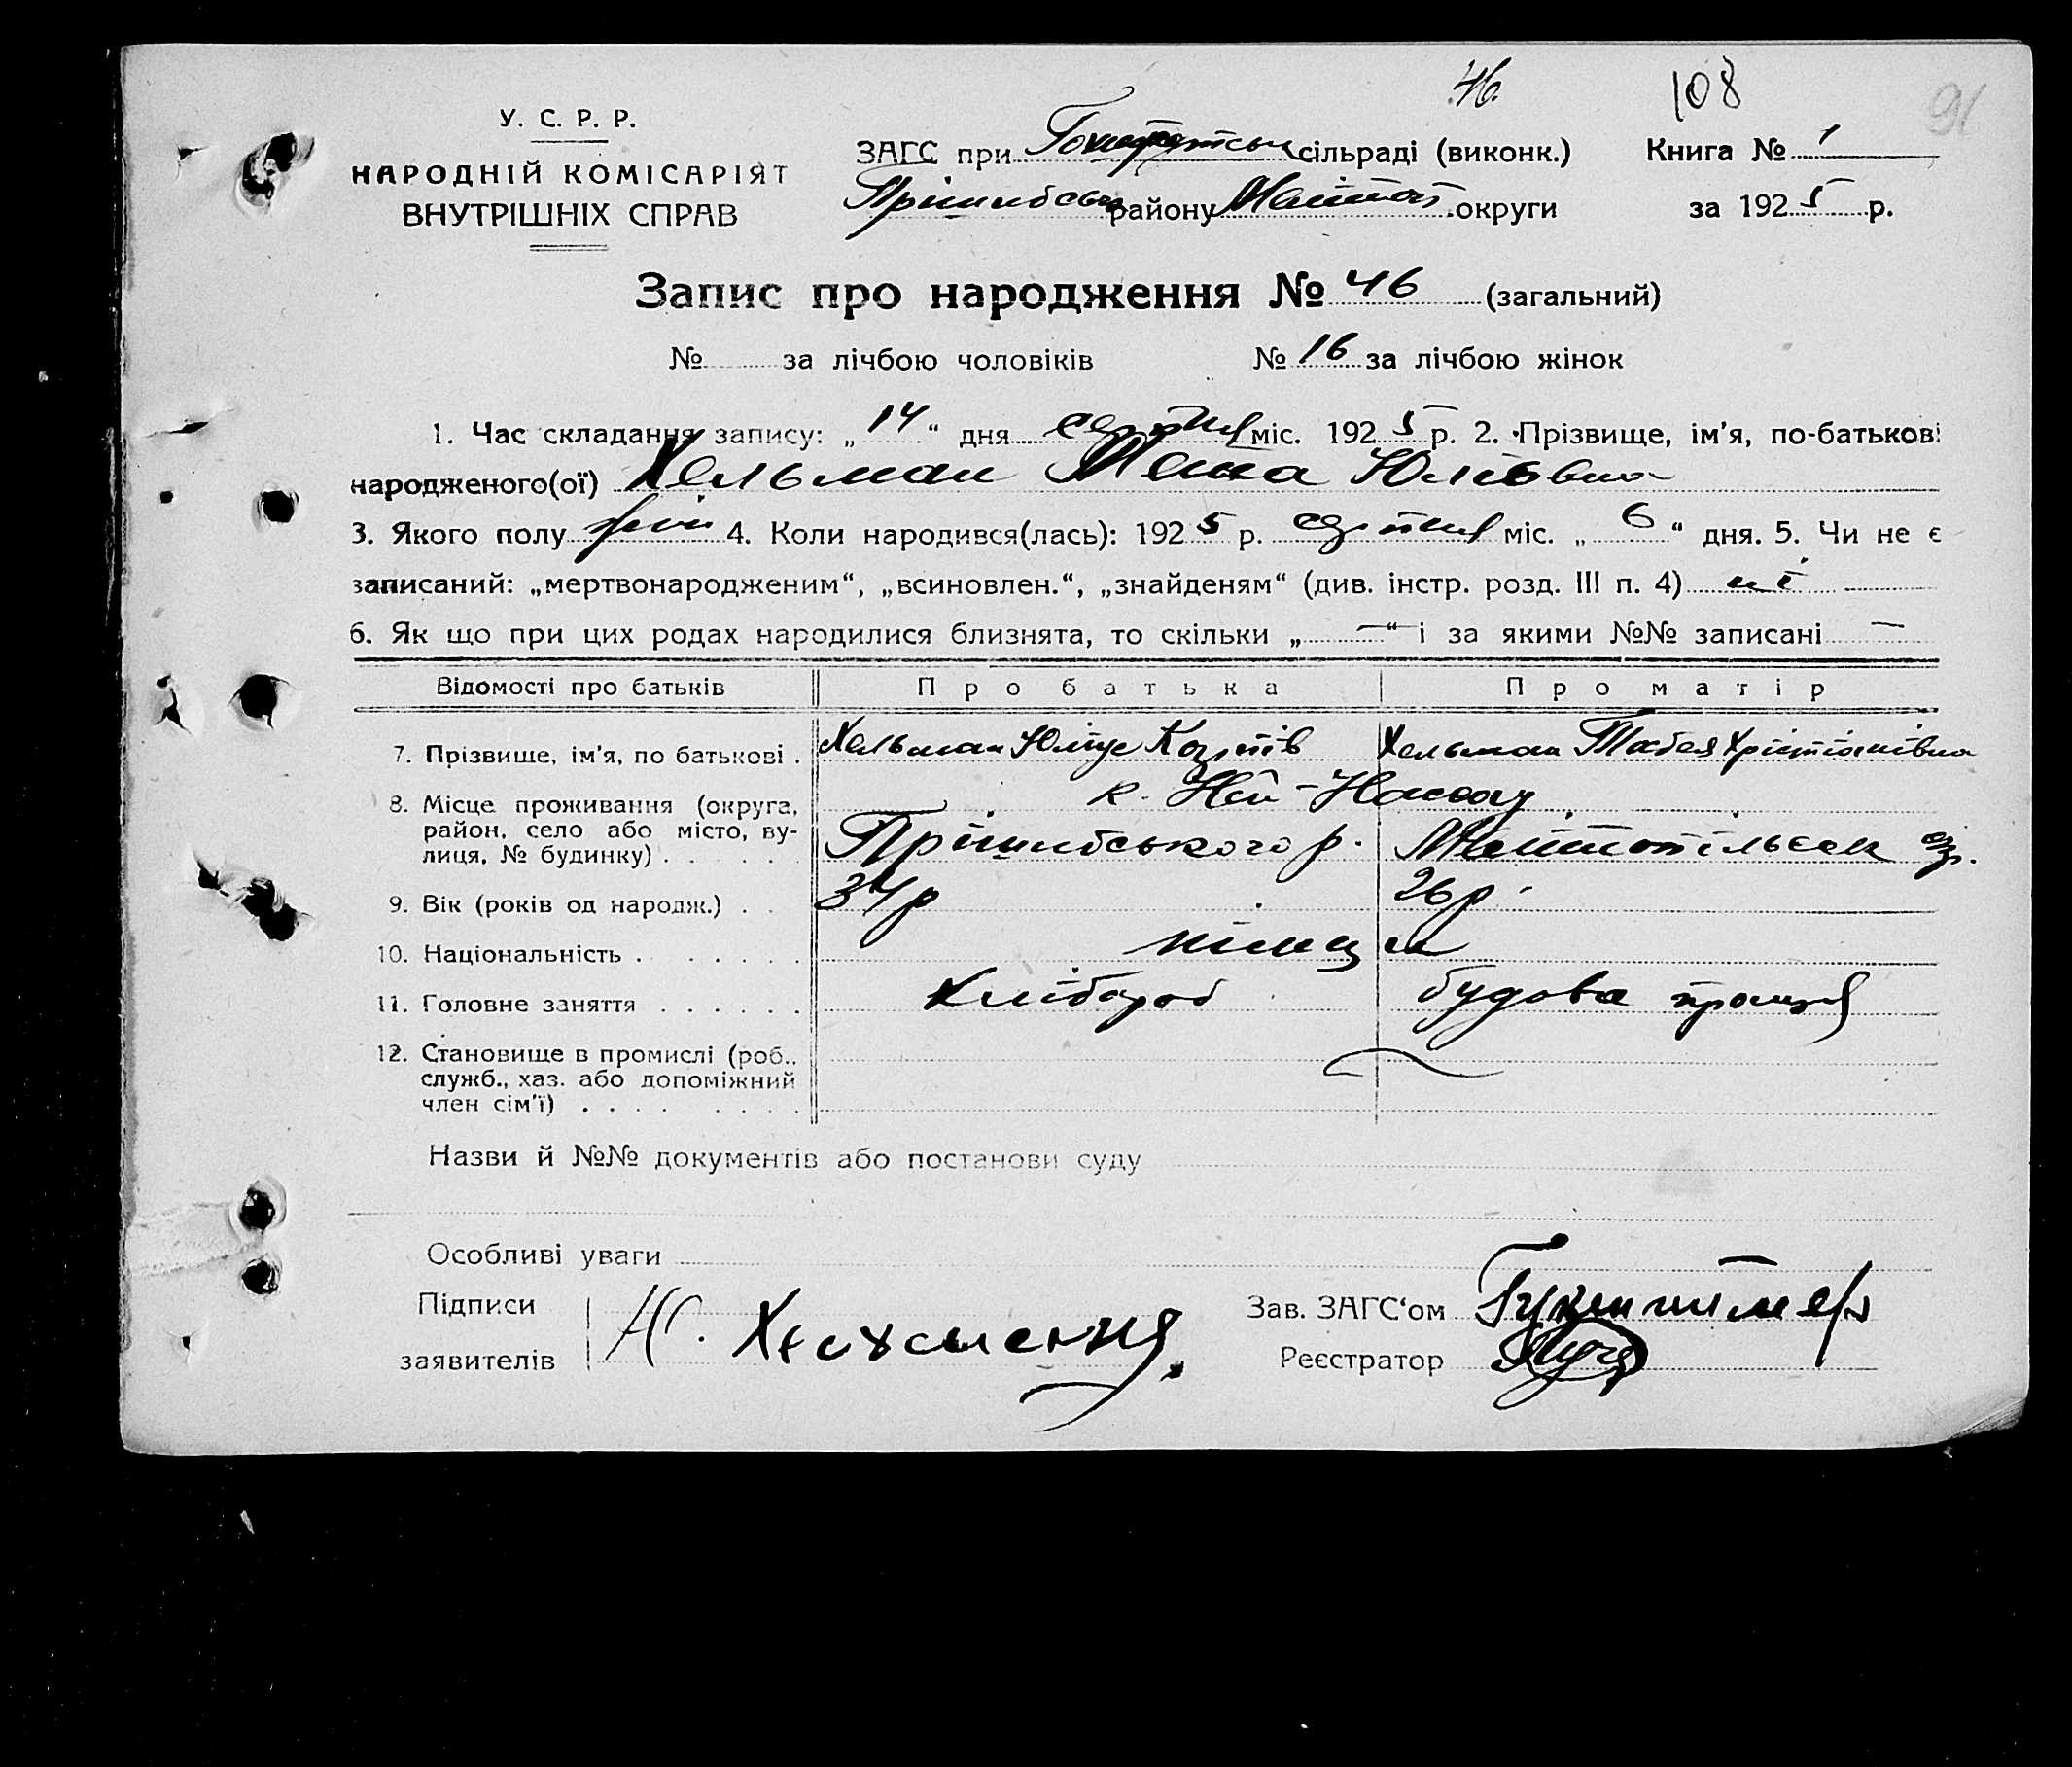 46. 108 91
У. С. Р. Р.
НАРОДНІЙ КОМІСАРІЯТ
ВНУТРІШНІХ СПРАВ
ЗАГС при сільраді (виконк.) Книга № 1
Пришибськ району Меліт округи за 1925 р.
Запис про народження № 46 (загальний)
№ за лічбою чоловіків № 16 за лічбою жінок
1. Час складання запису: „ 14 “ дня серпня міс. 1925 р. 2. Прізвище, ім’я, по-батькові
народженого(ої) Хельман Юліївна
3. Якого полу жін 4. Коли народився(лась): 1925 р. серпня міс. „ 6 “ дня. 5. Чи не є
записаний: „мертвонародженим“, „всиновлен.“, „знайденям“ (див. інстр. розд. III п. 4) ні
6. Як що при цих родах народилися близнята, то скільки „ — “ і за якими №№ записані —
Відомості про батьків Про батька Про матір
7. Прізвище, ім’я, по батькові . Хельман Юліус Хельман Хрістіанівна
8. Місце проживання (округа, к. Ней-Насау
район, село або місто, ву- Прішибського р.
лиця, № будинку) . . . . .
9. Вік (років од народж.) . . 34 р 26 р
10. Національність . . . . . . німци
11. Головне заняття . . . . . . Хлібороб
12. Становище в промислі (роб.,
служб., хаз. або допоміжний
член сім’ї) . . . . . . . .
Назви й №№ документів або постанови суду
Особливі уваги
Підписи
заявителів
Зав. ЗАГС‘ом
Реєстратор